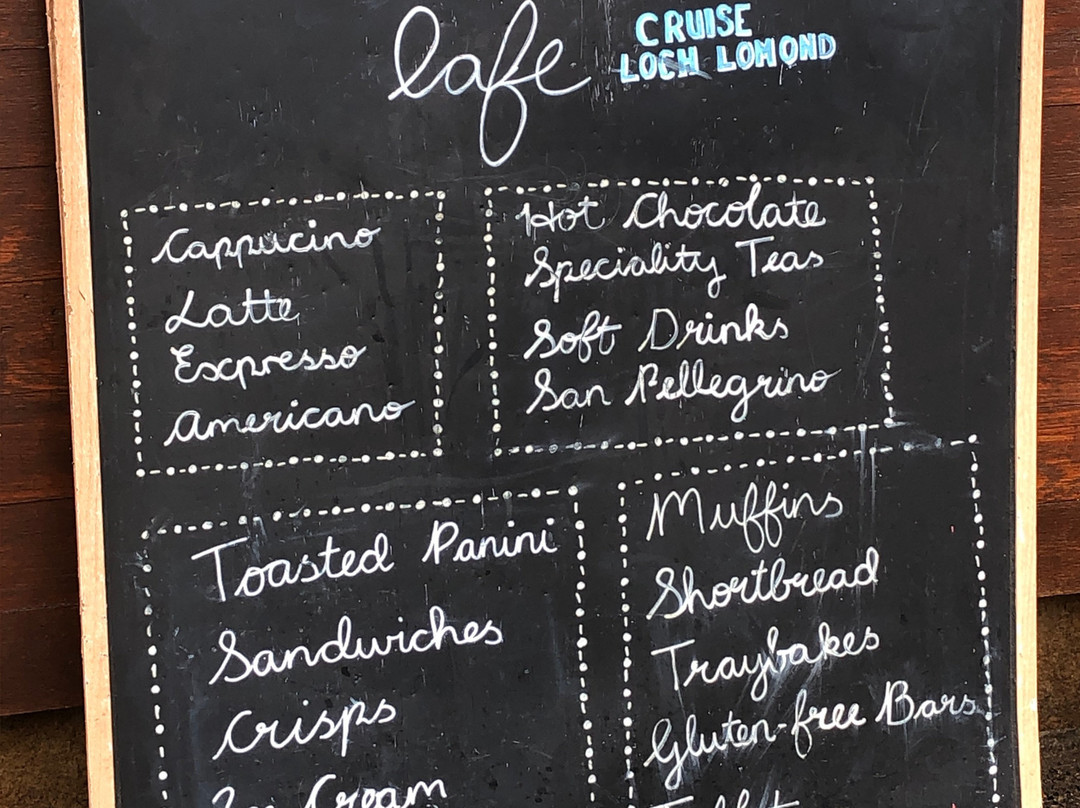 Cafe
CRUISE
LOCH LOMOND
Cappucino
Latte
Expresso
Americano
Hot Chocolate
Speciality Teas
Soft Drinks
San Pellegrino
Toasted Panini
Sandwiches
Crisps
Ice Cream
Muffins
Shortbread
Traybakes
Gluten-free Bars